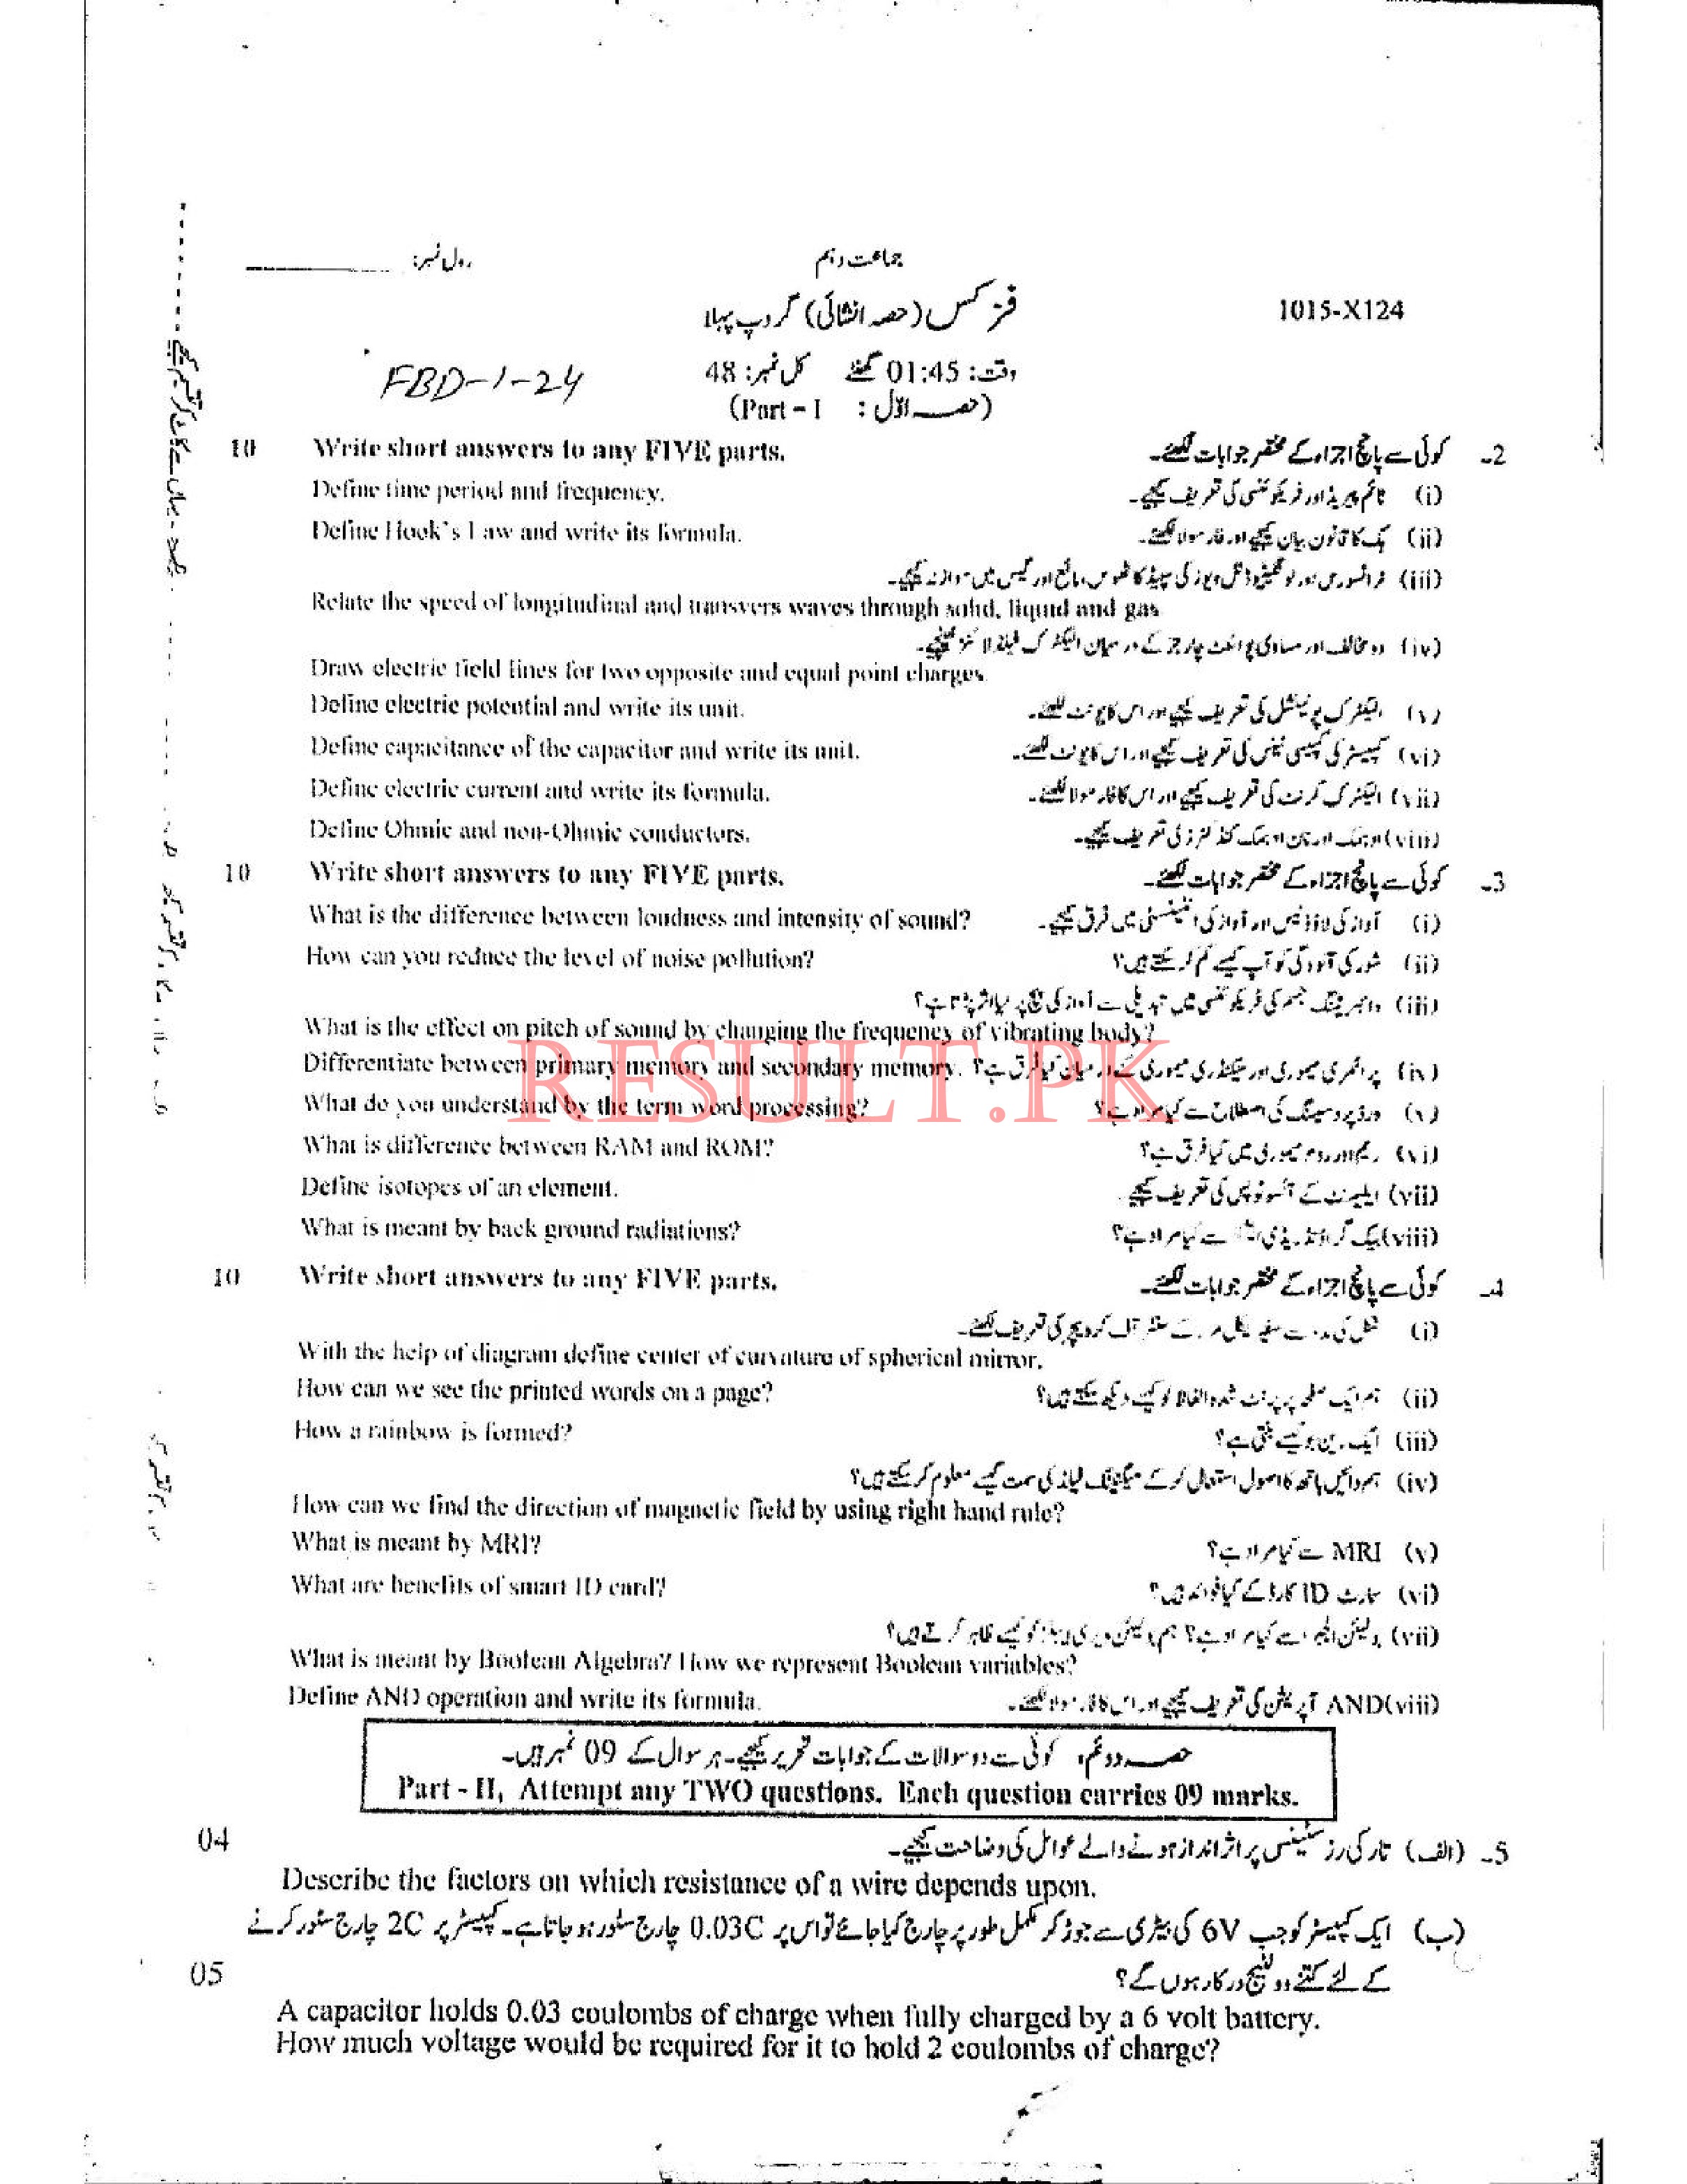 رول نمبر: ____________
جماعت دہم
1015-X124
فزکس (حصہ انشائی) گروپ پہلا
FBD-1-24
وقت: 01:45 گھنٹے کل نمبر: 48
(حصہ اوّل : Part – I)
2- کوئی سے پانچ اجزاء کے مختصر جوابات لکھئے۔
Write short answers to any FIVE parts. 10
(i) ٹائم پیریڈ اور فریکوئنسی کی تعریف کیجیے۔
Define time period and frequency.
(ii) ہک کا قانون بیان کیجیے اور فارمولا لکھئے۔
Define Hook's Law and write its formula.
(iii) ٹرانسورس اور لونگیٹیوڈنل ویوز کی سپیڈ کا ٹھوس، مائع اور گیس میں موازنہ کیجیے۔
Relate the speed of longitudinal and transvers waves through solid, liquid and gas
(iv) دو مخالف اور مساوی پوائنٹ چارجز کے درمیان الیکٹرک فیلڈ لائنز کھینچیے۔
Draw electric field lines for two opposite and equal point charges.
(v) الیکٹرک پوٹینشل کی تعریف کیجیے اور اس کا یونٹ لکھئے۔
Define electric potential and write its unit.
(vi) کپیسٹر کی کپیسی ٹینس کی تعریف کیجیے اور اس کا یونٹ لکھئے۔
Define capacitance of the capacitor and write its unit.
(vii) الیکٹرک کرنٹ کی تعریف کیجیے اور اس کا فارمولا لکھئے۔
Define electric current and write its formula.
(viii) اوہمک اور نان اوہمک کنڈکٹرز کی تعریف کیجیے۔
Define Ohmic and non-Ohmic conductors.
3- کوئی سے پانچ اجزاء کے مختصر جوابات لکھئے۔
Write short answers to any FIVE parts. 10
(i) آواز کی لاؤڈنیس اور آواز کی انٹینسٹی میں فرق کیجیے۔
What is the difference between loudness and intensity of sound?
(ii) شور کی آلودگی کو آپ کیسے کم کر سکتے ہیں؟
How can you reduce the level of noise pollution?
(iii) وائبریٹنگ جسم کی فریکوئنسی میں تبدیلی سے آواز کی پچ پر کیا اثر پڑتا ہے؟
What is the effect on pitch of sound by changing the frequency of vibrating body?
(iv) پرائمری میموری اور سیکنڈری میموری کے درمیان کیا فرق ہے؟
Differentiate between primary memory and secondary memory.
(v) ورڈ پروسیسنگ کی اصطلاح سے کیا مراد ہے؟
What do you understand by the term word processing?
RESULT.PK
(vi) ریم اور روم میموری میں کیا فرق ہے؟
What is difference between RAM and ROM?
(vii) ایلیمنٹ کے آئسوٹوپس کی تعریف کیجیے
Define isotopes of an element.
(viii) بیک گراؤنڈ ریڈی ایشنز سے کیا مراد ہے؟
What is meant by back ground radiations?
4- کوئی سے پانچ اجزاء کے مختصر جوابات لکھئے۔
Write short answers to any FIVE parts. 10
(i) شکل کی مدد سے سفیریکل مرر کے سنٹر آف کرویچر کی تعریف لکھئے۔
With the help of diagram define center of curvature of spherical mirror.
(ii) ہم ایک صفحہ پر پرنٹ شدہ الفاظ کو کیسے دیکھ سکتے ہیں؟
How can we see the printed words on a page?
(iii) ایک رین بو کیسے بنتی ہے؟
How a rainbow is formed?
(iv) ہم دائیں ہاتھ کا اصول استعمال کر کے میگنیٹک فیلڈ کی سمت کیسے معلوم کر سکتے ہیں؟
How can we find the direction of magnetic field by using right hand rule?
(v) MRI سے کیا مراد ہے؟
What is meant by MRI?
(vi) سمارٹ ID کارڈ کے کیا فوائد ہیں؟
What are benefits of smart ID card?
(vii) بولیئن الجبرا سے کیا مراد ہے؟ ہم بولیئن ویری ایبلز کو کیسے ظاہر کرتے ہیں؟
What is meant by Boolean Algebra? How we represent Boolean variables?
(viii) AND آپریشن کی تعریف کیجیے اور اس کا فارمولا لکھئے۔
Define AND operation and write its formula.
حصہ دوئم، کوئی سے دو سوالات کے جوابات تحریر کیجیے۔ ہر سوال کے 09 نمبر ہیں۔
Part - II, Attempt any TWO questions. Each question carries 09 marks.
5- (الف) تار کی رزسٹینس پر اثر انداز ہونے والے عوامل کی وضاحت کیجیے۔ 04
Describe the factors on which resistance of a wire depends upon.
(ب) ایک کپیسٹر کو جب 6V کی بیٹری سے جوڑ کر مکمل طور پر چارج کیا جائے تو اس پر 0.03C چارج سٹور ہو جاتا ہے۔ کپیسٹر پر 2C چارج سٹور کرنے
کے لئے کتنے وولٹیج درکار ہوں گے؟ 05
A capacitor holds 0.03 coulombs of charge when fully charged by a 6 volt battery.
How much voltage would be required for it to hold 2 coulombs of charge?